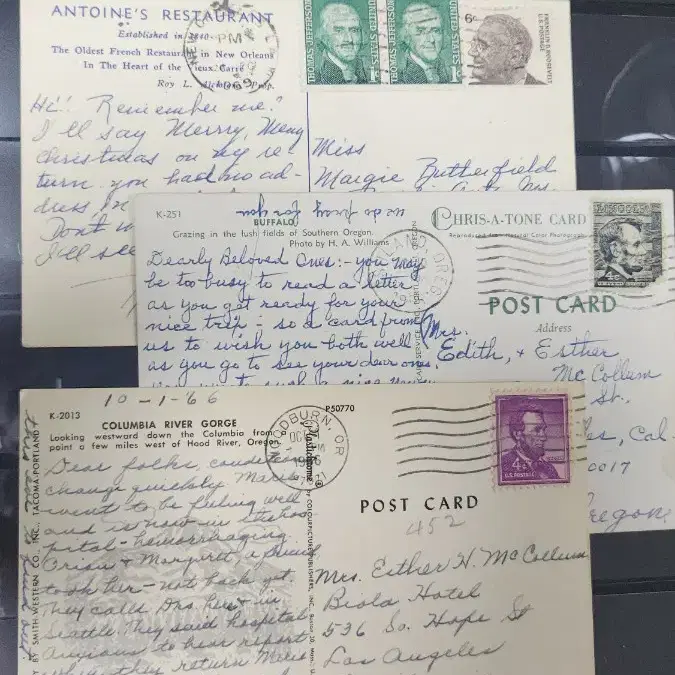 ANTOINE'S RESTAURANT
Established in 1840
The Oldest French Restaurant in New Orleans
In The Heart of the Vieux Carré
Roy L. Alciatore, Prop.
PM
THOMAS JEFFERSON
UNITED STATES
1c
THOMAS JEFFERSON
UNITED STATES
1c
6c
FRANKLIN D. ROOSEVELT
U.S. POSTAGE
Hi! Remember me?
I'll say Merry, Merry
Christmas on my re
turn. you had no ad-
dress, in
Don't
I'll see
Miss
Margie Butterfield
K-251
we do pray for you
BUFFALO
Grazing in the lush fields of Southern Oregon.
Photo by H. A. Williams
CHRIS-A-TONE CARD
Reproduced from Natural Color Photograph
4c
POST CARD
Address
Dearly Beloved Ones:- you may
be too busy to read a letter
as you get ready for your
nice trip - so a card from
us to wish you both well
as you go to see your dear ones.
Mrs.
Edith, + Esther
McCollum
St.
Cal.
0017
regon
10-1-'66
K-2013
P50770
COLUMBIA RIVER GORGE
Looking westward down the Columbia from a
point a few miles west of Hood River, Oregon.
WOODBURN, OR
1966
4c
U.S. POSTAGE
POST CARD
452
BY SMITH-WESTERN CO., INC., TACOMA-PORTLAND
BY COLOURPICTURE PUBLISHERS, INC.
Dear folks, conditions
change quickly. Marie
went to be feeling well
and is now in the hos
pital - hemorrhaging.
took her - not back yet.
They called Drs. here + in
Seattle. They said hospital
Anxious to hear report
when they return. Marie
Mrs. Esther H. McCollum
Biola Hotel
536 So. Hope St
Los Angeles